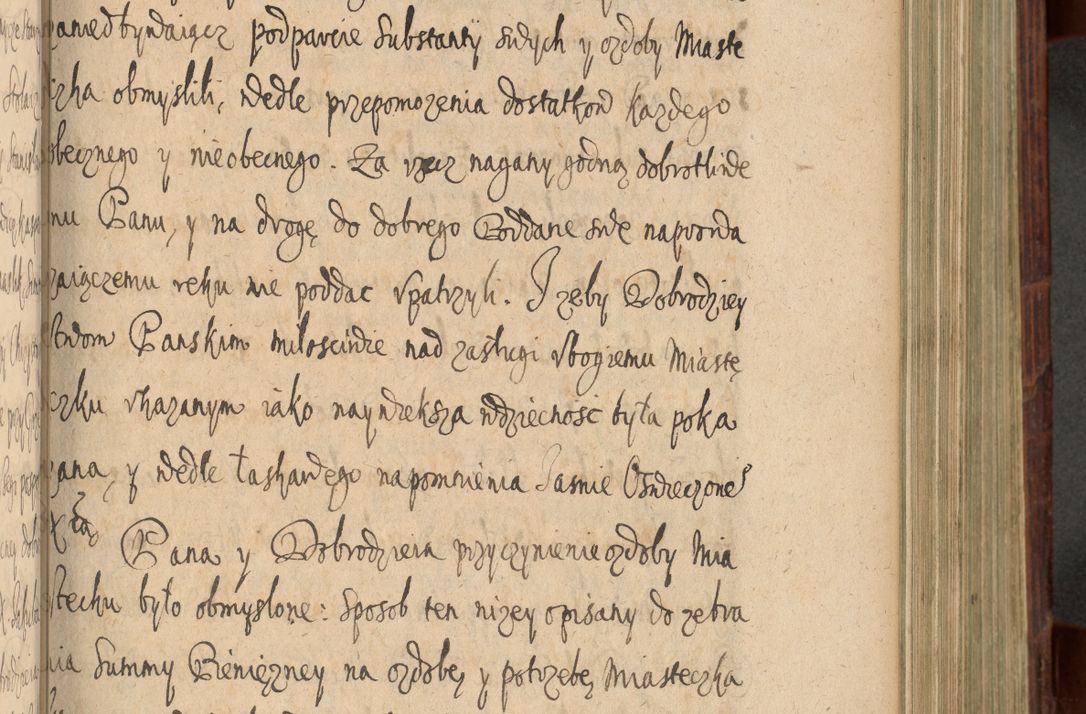 zaniedbyndaiącz podparcie Substanty swych y ozdoby Miaste
czka obmyslili, wedle przepomozenia dostatkow kazdego
obecznego y nieobecnego. Za rzecz nagany godną dobrotliwe
mu Panu, y na drogę do dobrego Poddane swe naprowa
dzaiączemu reku nie poddac vpatrzyli. J zeby Dobrodziey
stwom Panskim miłosciwie nad zasługi vbogiemu Miastę
czku vkazanym iako naywieksza wdziecnosc była poka
zana, y wedle łaskawego napomnienia Jasnie Oswieczone°
X^cia Pana y Dobrodzieia przyczynienie ozdoby Mia
stechu było obmyslone: Sposob ten nizey opisany do zebra
nia Summy Pieniężney na ozdobę y potrzebę Miasteczka